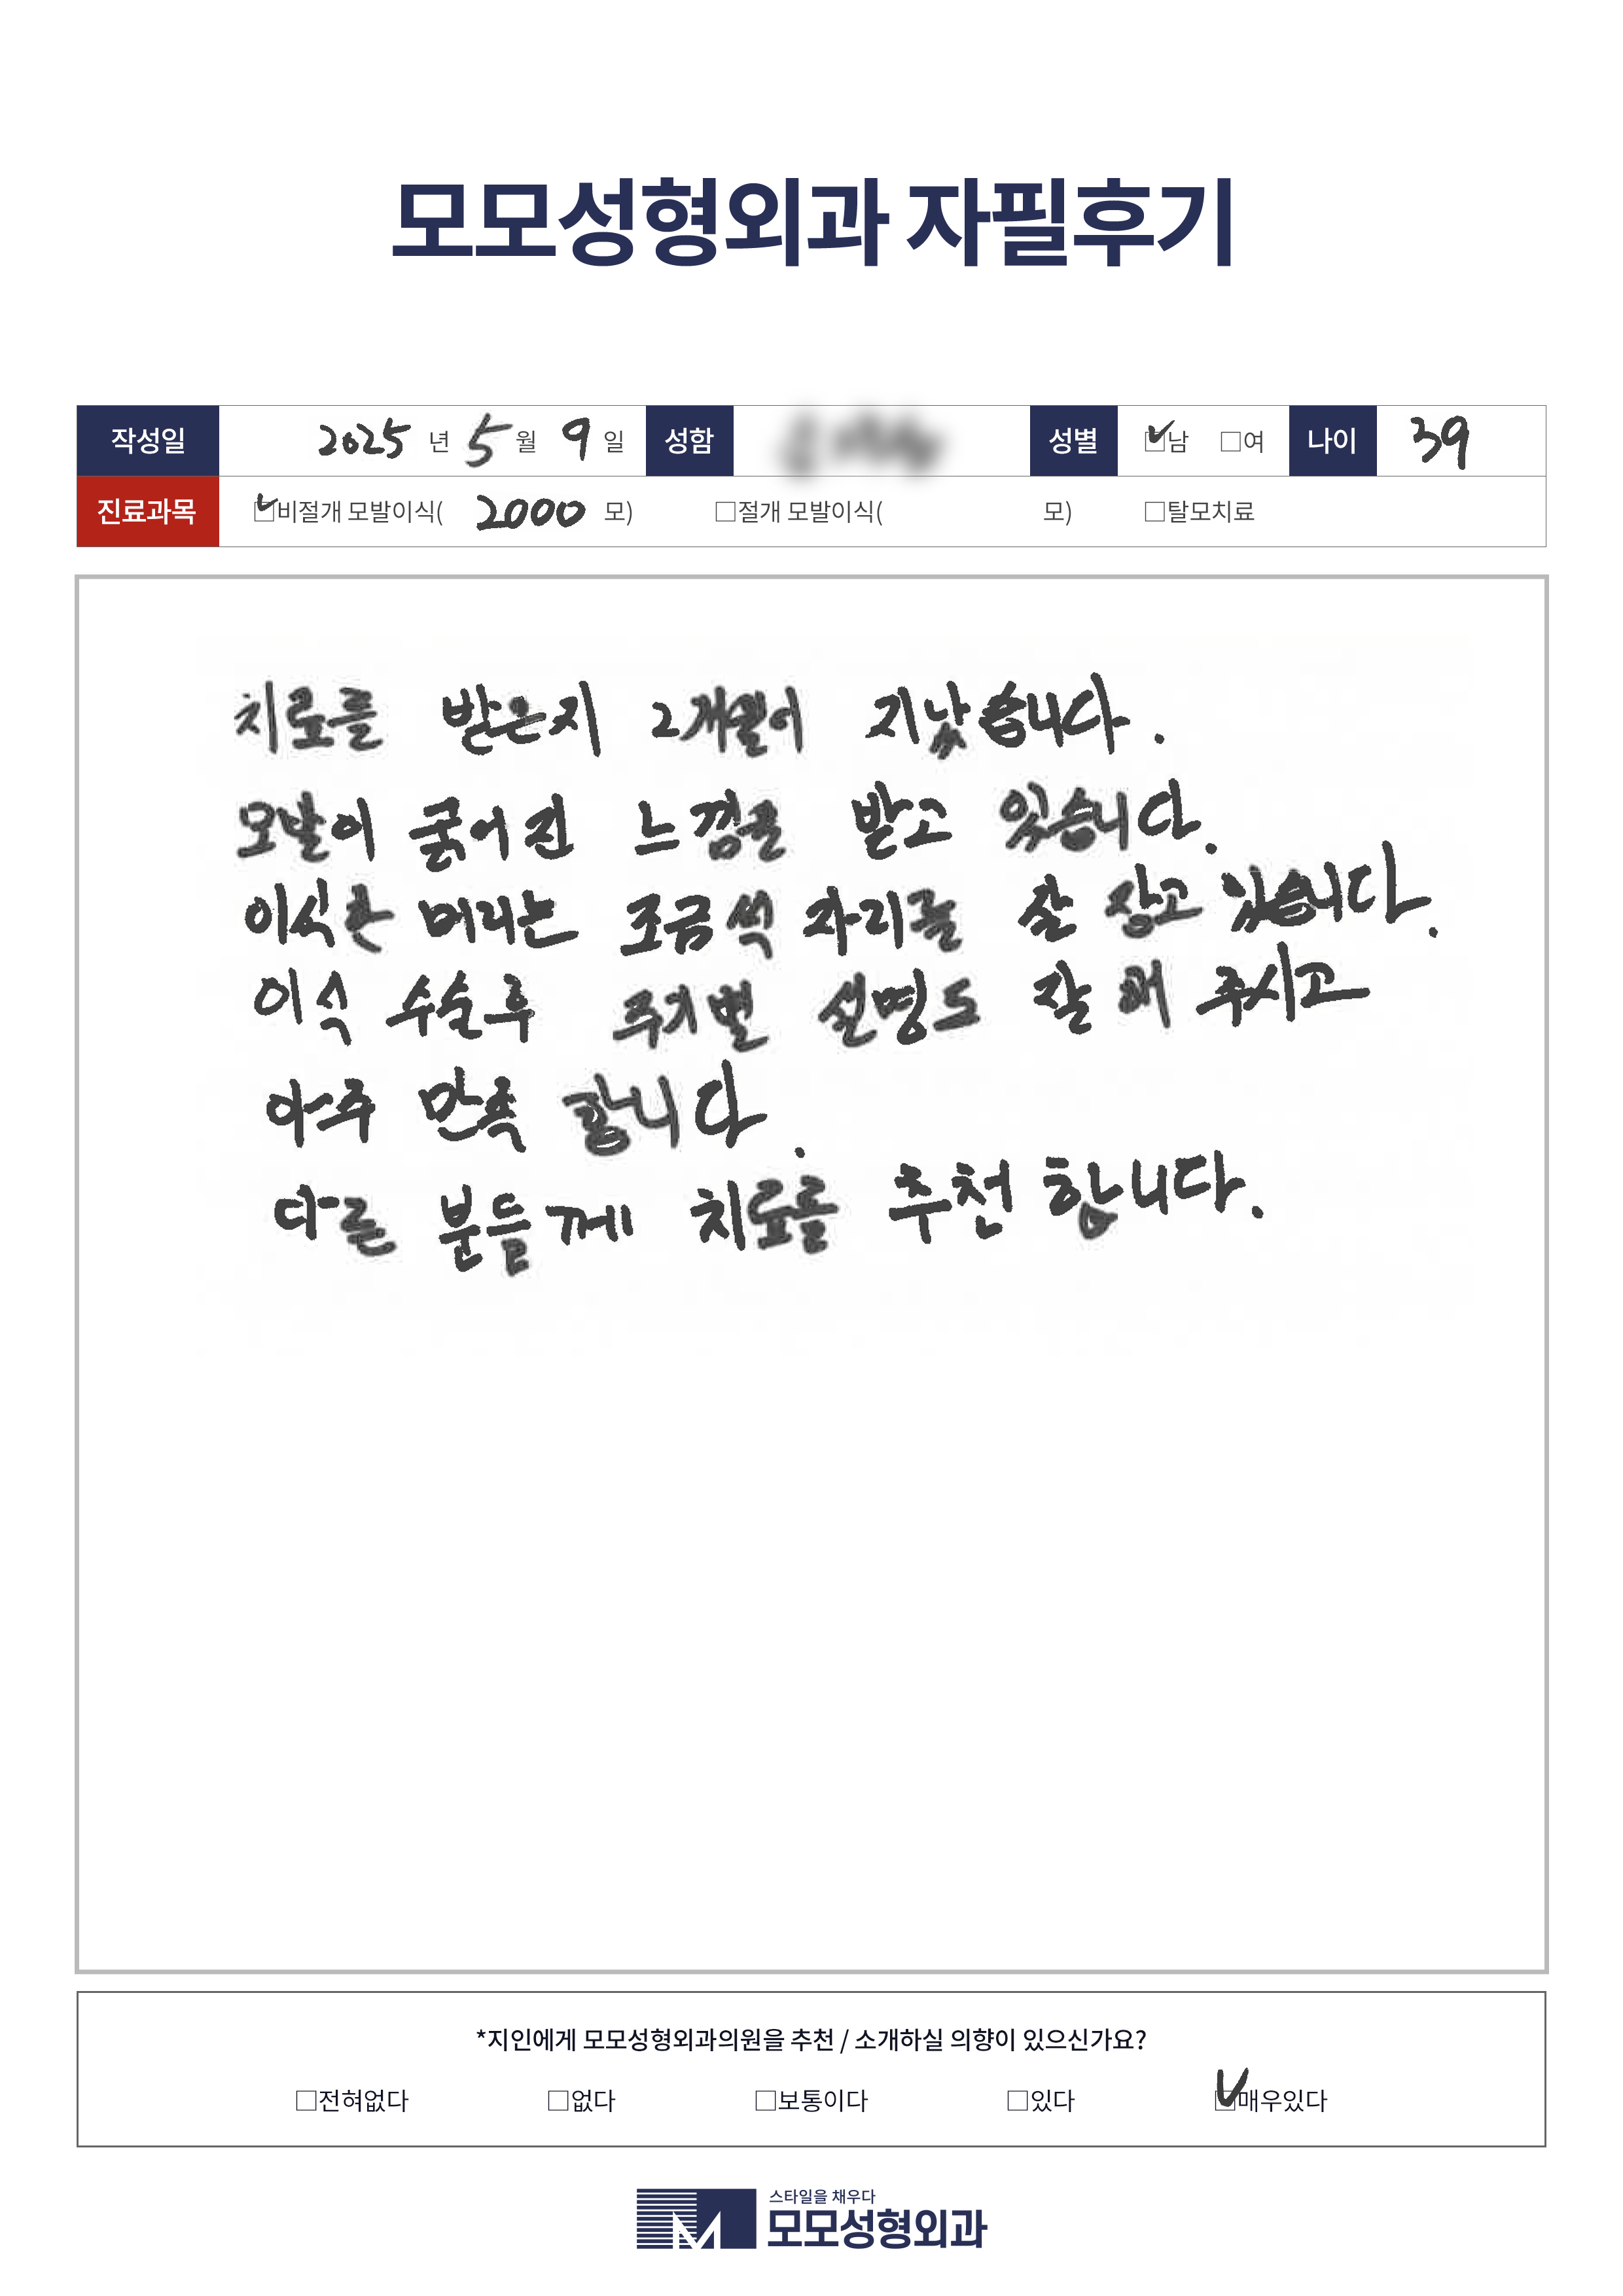 모모성형외과 자필후기
작성일 2025 년 5 월 9 일 성함 성별 ☑남 □여 나이 39
진료과목 ☑비절개 모발이식( 2000 모) □절개 모발이식( 모) □탈모치료
치료를 받은지 2개월이 지났습니다.
모발이 굵어진 느낌을 받고 있습니다.
이식한 머리는 조금씩 자리를 잘 잡고 있습니다.
이식 수술후 주기별 설명도 잘 해 주시고
아주 만족 합니다.
다른 분들께 치료를 추천 합니다.
*지인에게 모모성형외과의원을 추천 / 소개하실 의향이 있으신가요?
□전혀없다 □없다 □보통이다 □있다 ☑매우있다
스타일을 채우다
모모성형외과